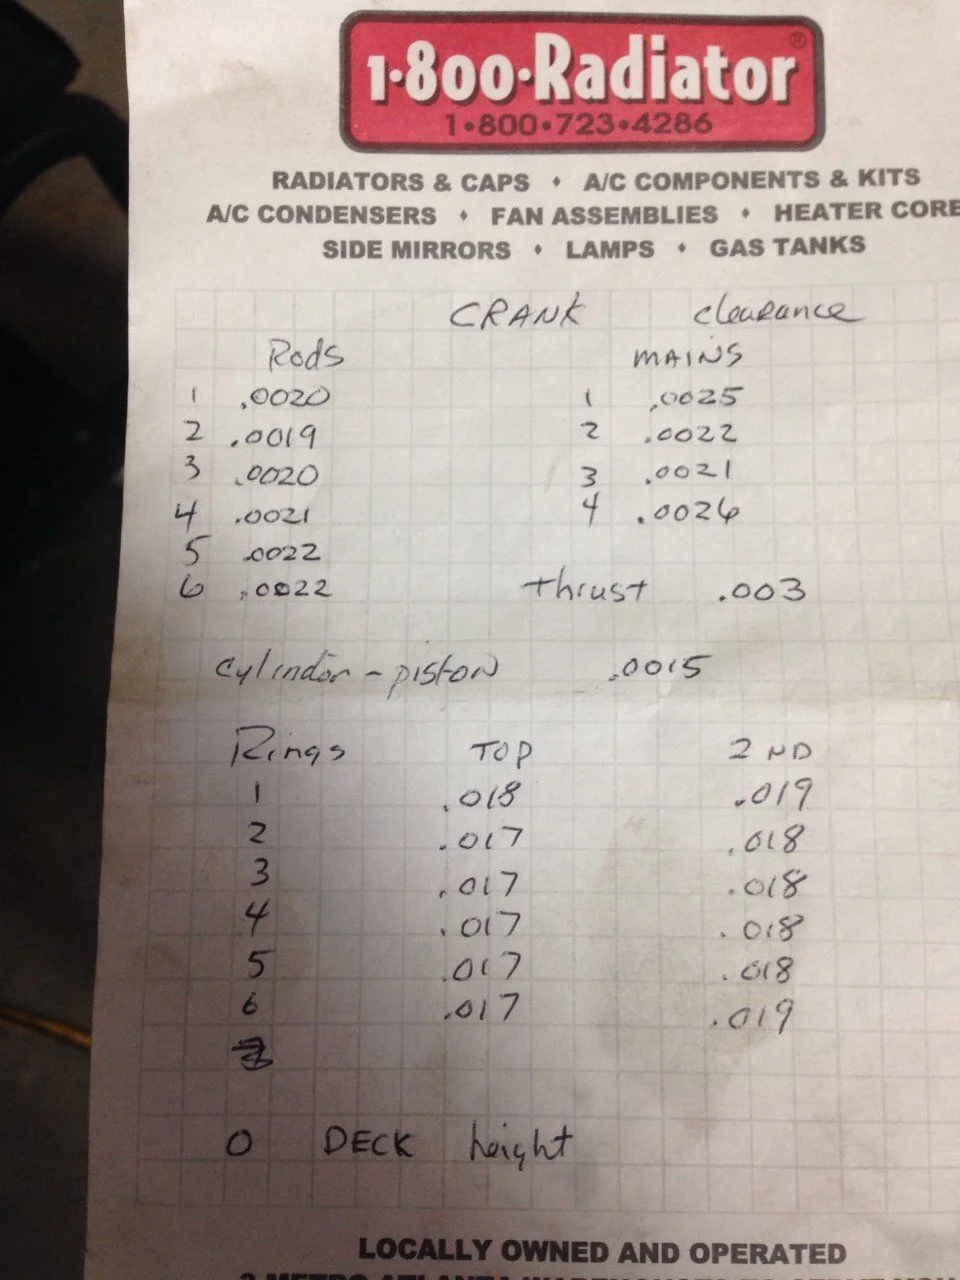 1•800•Radiator®
1•800•723•4286
RADIATORS & CAPS ♦ A/C COMPONENTS & KITS
A/C CONDENSERS ♦ FAN ASSEMBLIES ♦ HEATER CORE
SIDE MIRRORS ♦ LAMPS ♦ GAS TANKS
CRANK clearance
Rods MAINS
1 .0020 1 .0025
2 .0019 2 .0022
3 .0020 3 .0021
4 .0021 4 .0026
5 .0022
6 .0022 thrust .003
cylinder - piston .0015
Rings TOP 2ND
1 .018 .019
2 .017 .018
3 .017 .018
4 .017 .018
5 .017 .018
6 .017 .019
0 DECK height
LOCALLY OWNED AND OPERATED